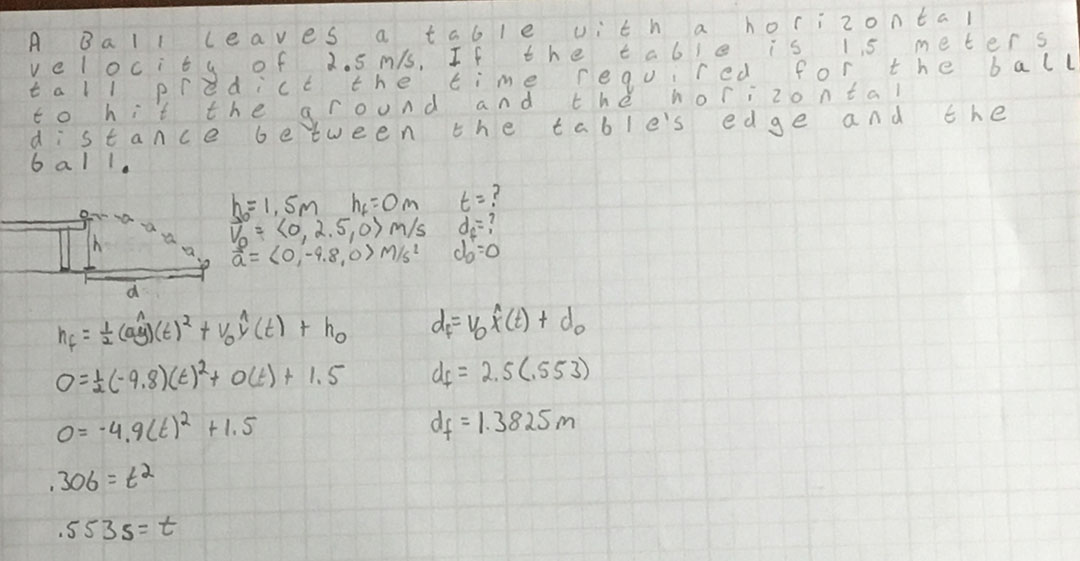 A Ball leaves a table with a horizontal
velocity of 2.5 m/s. If the table is 1.5 meters
tall predict the time required for the ball
to hit the ground and the horizontal
distance between the table's edge and the
ball.
h₀=1,5m h_f=0m t=?
v₀ = <0, 2.5, 0> m/s d_f=?
a = <0,-9.8,0> M/s² d₀=0
h
d
h_f = ½(aŷ)(t)² + v₀ŷ(t) + h₀ d_f=v₀x̂(t) + d₀
0=½(-9.8)(t)²+ 0(t)+ 1.5 d_f = 2.5(.553)
0= -4.9(t)² +1.5 d_f =1.3825m
.306 = t²
.553s= t